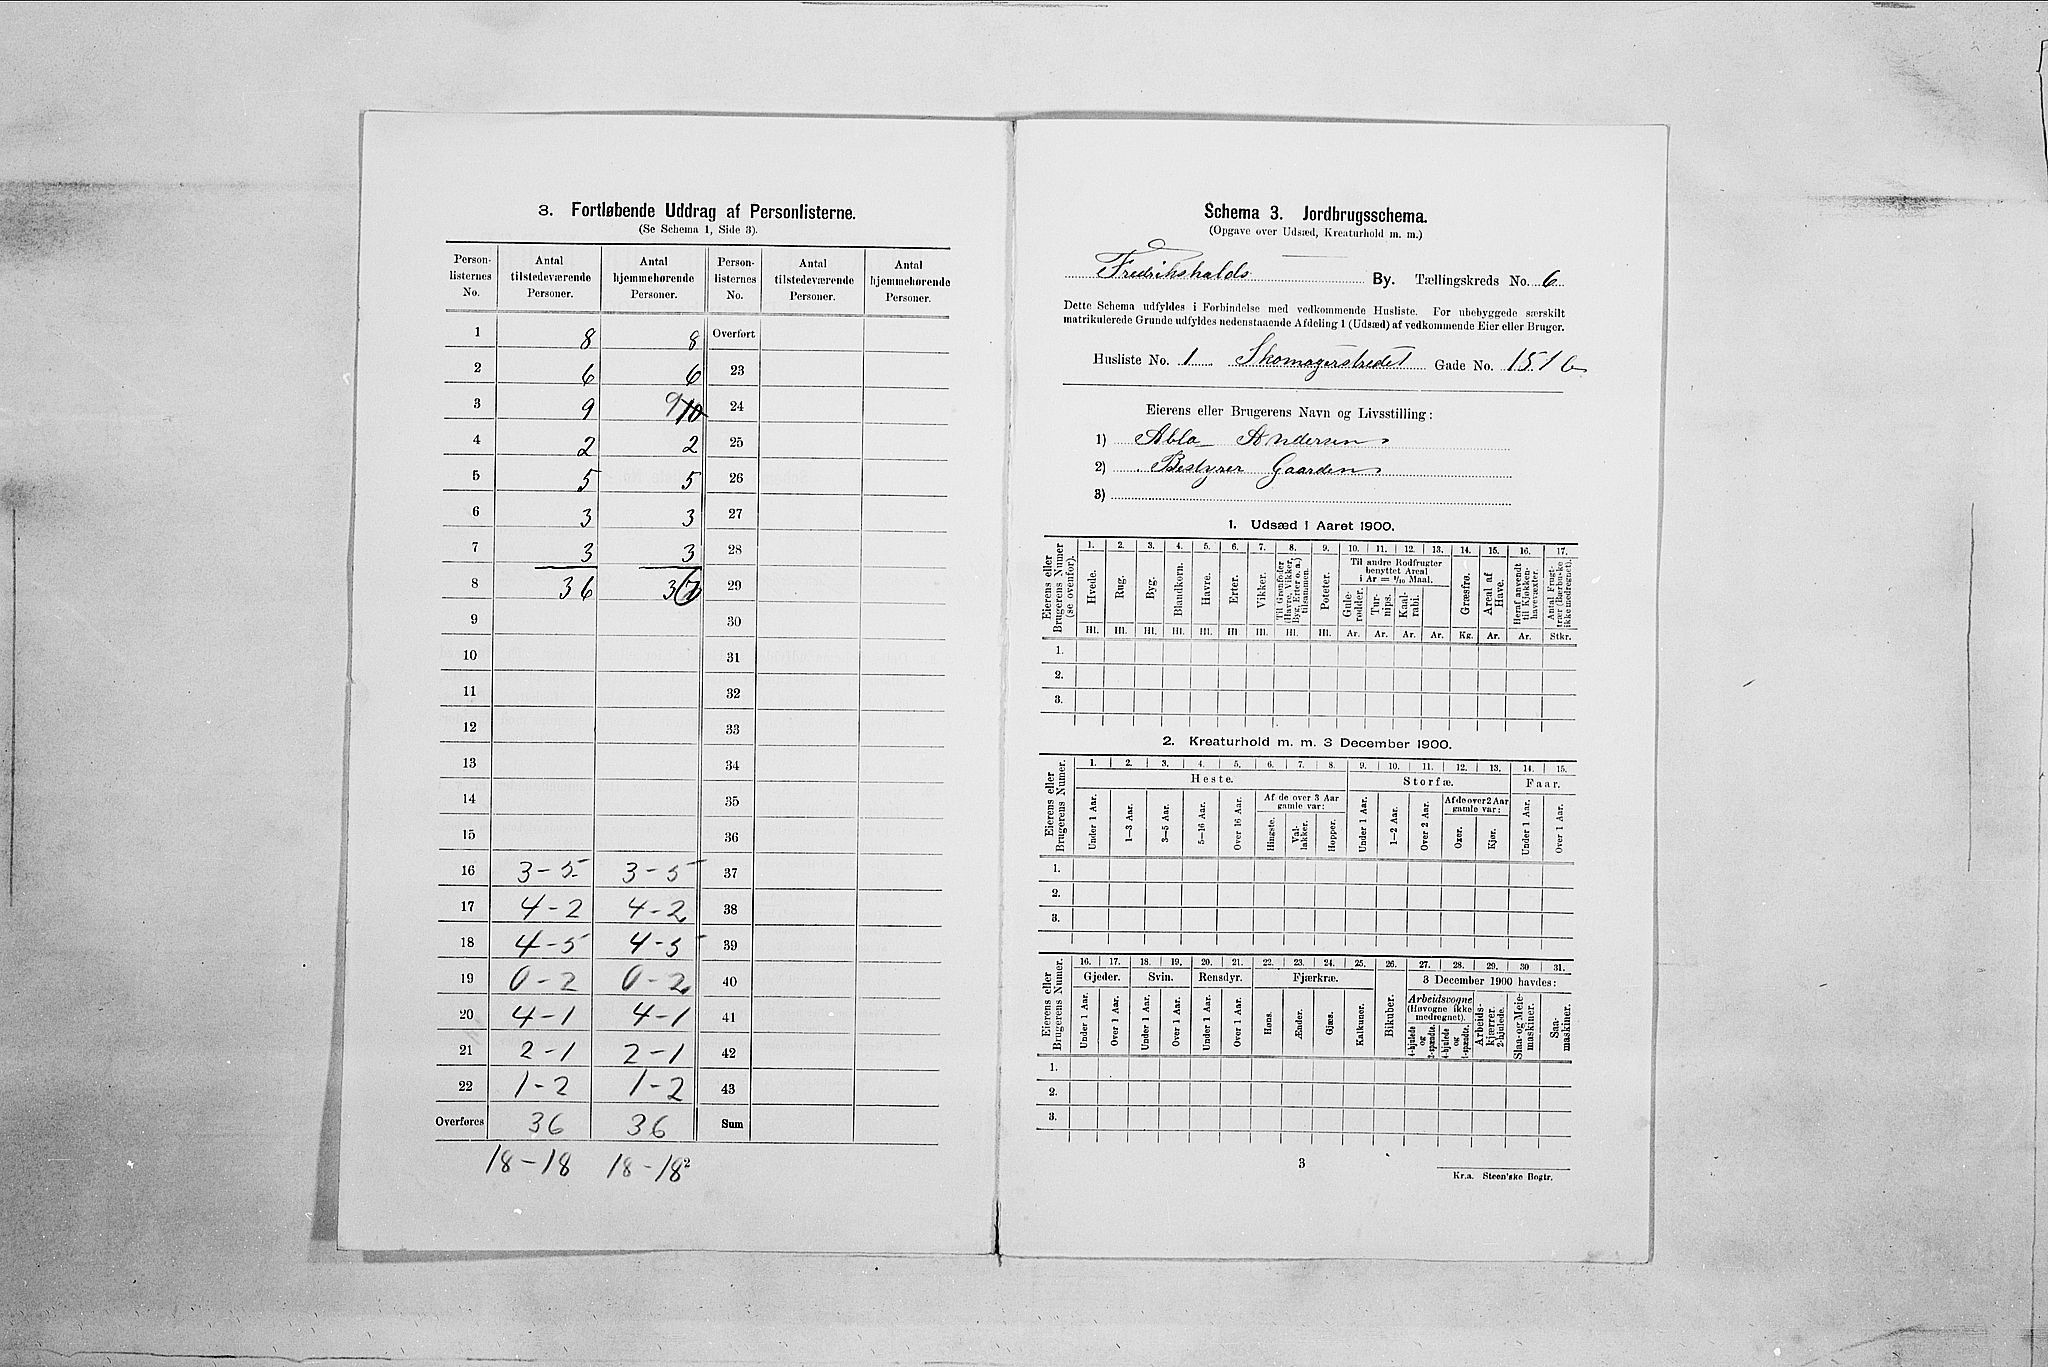 3. Fortløbende Uddrag af Personlisterne.
(Se Schema 1, Side 3).
Person-listernes No. Antal tilstedeværende Personer. Antal hjemmehørende Personer. Person-listernes No. Antal tilstedeværende Personer. Antal hjemmehørende Personer.
1 8 8 Overført
2 6 6 23
3 9 9 10 24
4 2 2 25
5 5 5 26
6 3 3 27
7 3 3 28
8 36 36 29
9 30
10 31
11 32
12 33
13 34
14 35
15 36
16 3-5 3-5 37
17 4-2 4-2 38
18 4-5 4-5 39
19 0-2 0-2 40
20 4-1 4-1 41
21 2-1 2-1 42
22 1-2 1-2 43
Overføres 36 36 Sum
18-18 18-18
Schema 3. Jordbrugsschema.
(Opgave over Udsæd, Kreaturhold m. m.)
Fredrikshalds By. Tællingskreds No. 6
Dette Schema udfyldes i Forbindelse med vedkommende Husliste. For ubebyggede særskilt
matrikulerede Grunde udfyldes nedenstaaende Afdeling 1 (Udsæd) af vedkommende Eier eller Bruger.
Husliste No. 1 Skomagerstredet Gade No. 151b
Eierens eller Brugerens Navn og Livsstilling:
1) Andersen
2) Bestyrer Gaarden
3)
1. Udsæd i Aaret 1900.
Eierens eller Brugerens Numer (se ovenfor).
1. 2. 3. 4. 5. 6. 7. 8. 9. 10. 11. 12. 13. 14. 15. 16. 17.
Hvede. Rug. Byg. Blandkorn. Havre. Erter. Vikker. Til Grønfoder (Havre, Vikker, Byg, Erter o. a.) tilsammen. Poteter. Til andre Rodfrugter benyttet Areal i Ar = 1/10 Maal. Gule-rødder. Tur-nips. Kaal-rabi. Græsfrø. Areal af Have. Heraf anvendt til Kjøkken-havevæxter. Antal Frugt-trær (Bærbuske ikke medregnet).
Hl. Hl. Hl. Hl. Hl. Hl Hl. Hl. Hl. Ar. Ar. Ar. Ar. Kg. Ar. Ar. Stkr.
1.
2.
3.
2. Kreaturhold m. m. 3 December 1900.
Eierens eller Brugerens Numer.
1. 2. 3. 4. 5. 6. 7. 8. 9. 10. 11. 12. 13. 14. 15.
Heste. Storfæ. Faar.
Under 1 Aar. 1—3 Aar. 3—5 Aar. 5—16 Aar. Over 16 Aar. Af de over 3 Aar gamle var: Hingste. Val-lakker. Hopper. Under 1 Aar. 1—2 Aar. Over 2 Aar. Af de over 2 Aar gamle var: Oxer. Kjør. Under 1 Aar. Over 1 Aar.
1.
2.
3.
Eierens eller Brugerens Numer.
16. 17. 18. 19. 20. 21. 22. 23. 24. 25. 26. 27. 28. 29. 30 31.
Gjeder. Svin. Rensdyr. Fjærkræ. Bikuber. 3 December 1900 havdes:
Under 1 Aar. Over 1 Aar. Under 1 Aar. Over 1 Aar. Under 1 Aar. Over 1 Aar. Høns. Ænder. Gjæs. Kalkuner. Arbeidsvogne (Høvogne ikke medregnet). 4-hjulede og 2-spændte. 4-hjulede og 1-spændte. Arbeids-kjærrer. 2-hjulede. Slaa- og Meie-maskiner. Saa-maskiner.
1.
2.
3.
3
Kr.a. Steen'ske Bogtr.